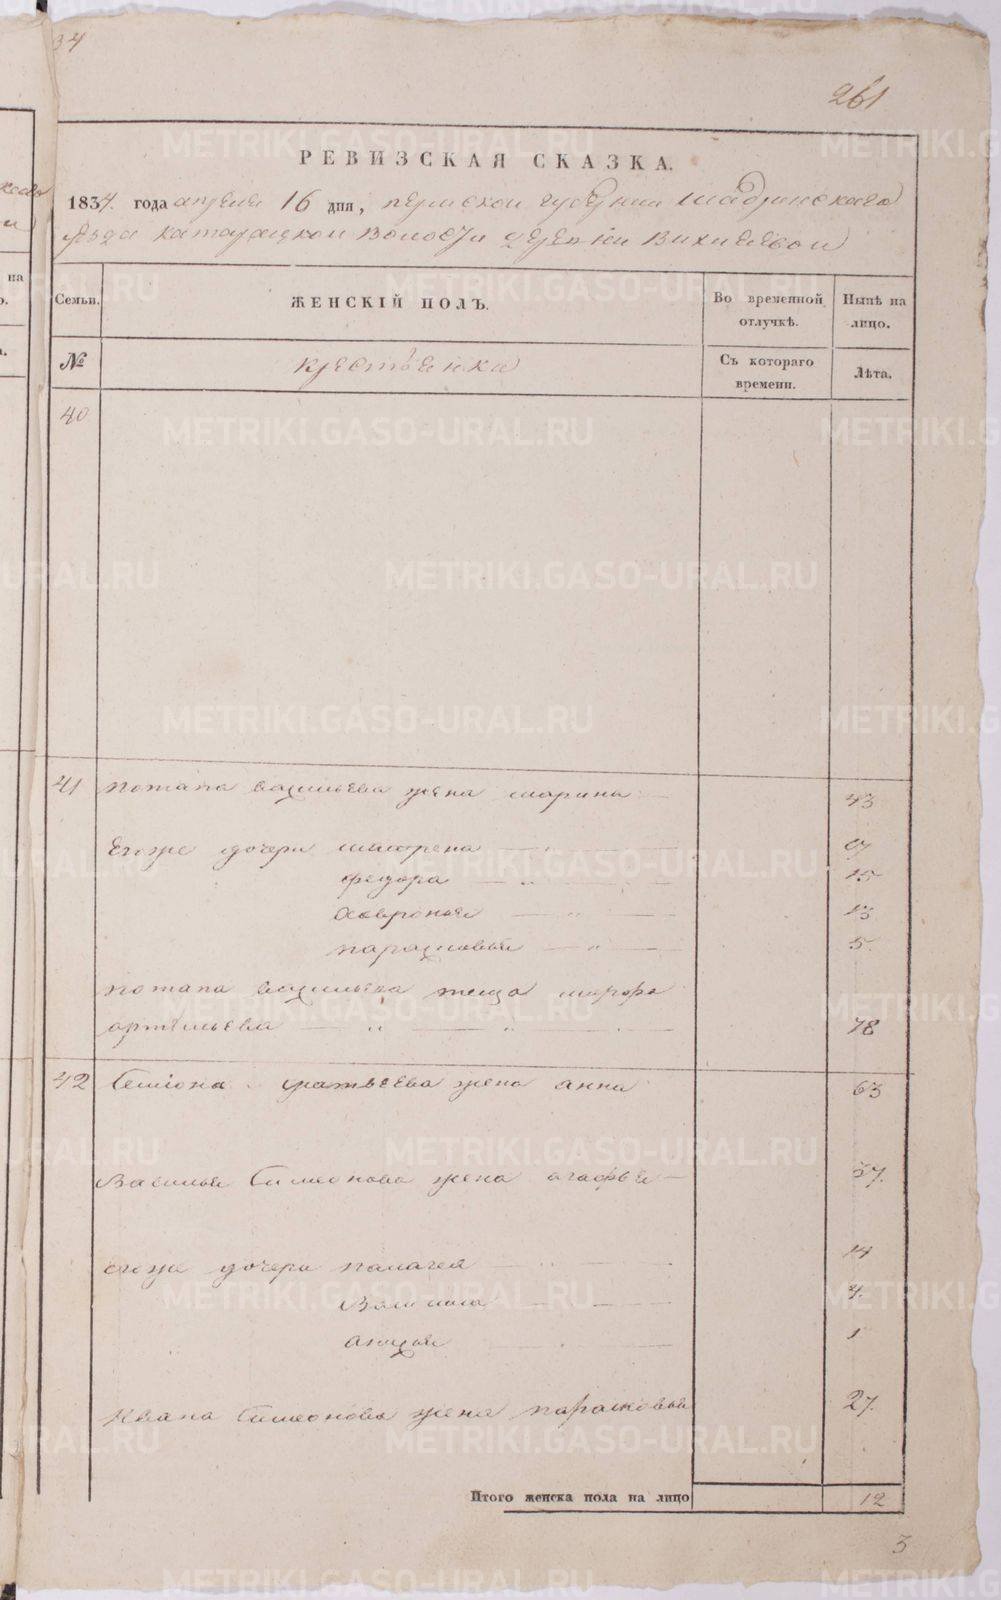 34
261
РЕВИЗСКАЯ СКАЗКА.
1834. года апреля 16 дня, пермской губернии шадринскаго
уезда катарацкой волости деревни Вихилевой
Семьи. ЖЕНСКІЙ ПОЛЪ. Во временной отлучкѣ. Нынѣ на лицо.
№ крестьянки Съ котораго времени. Лѣта.
40
41 потапа васильева жена марина 43
Егоже дочери матрена
федора 15
Хавронья 13
парасковья 5.
потапа васильева теща марфа
артемьева 78
42 Семиона жена анна 63
Василья Симеонова жена агафья 37.
егоже дочери палагея 14
Василиса 4.
анисья 1
Ивана Симеонова жена парасковья 27.
Итого женска пола на лицо 12
3
METRIKI.GASO-URAL.RU